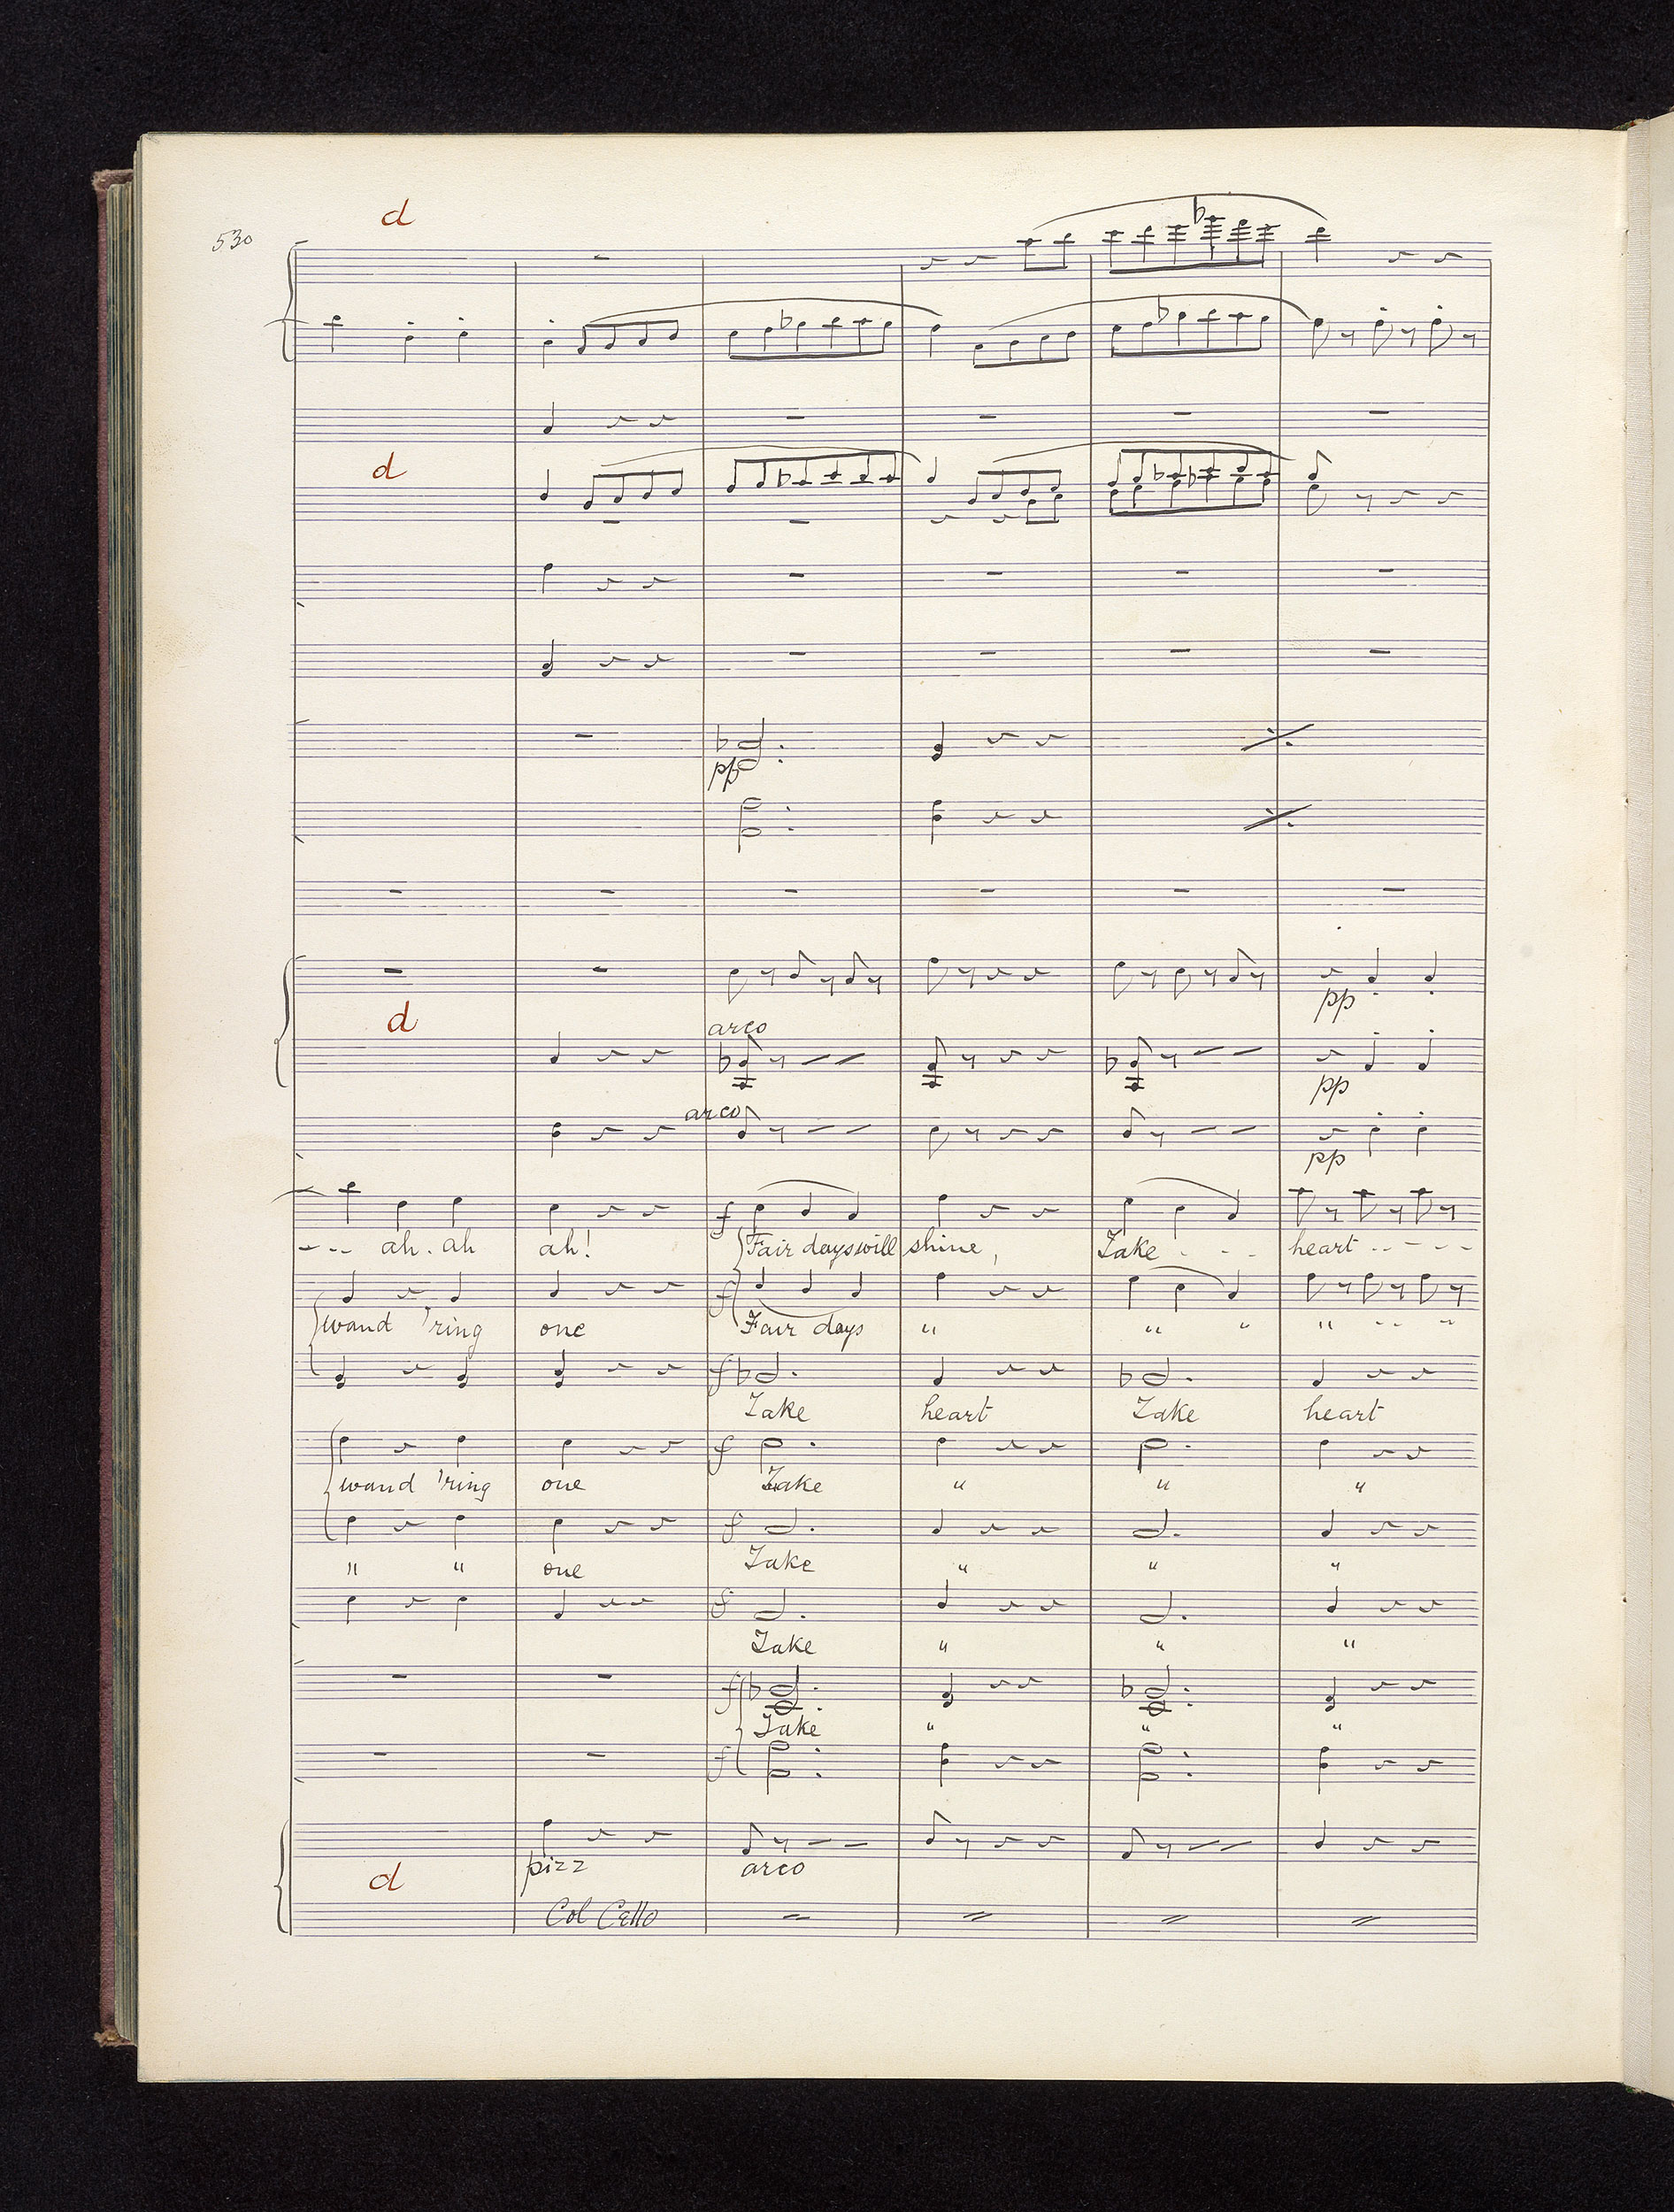 d
530
d
pp
pp
d
arco
pp
arco
pp
f
--- ah. ah ah! Fair days will shine, Take - - - heart - - - - -
f
wand 'ring one Fair days " " " " - - -
f
Take heart Take heart
f
wand 'ring one Take " " "
f
" " one Take " " "
f
Take " " "
f
Take " " "
f
pizz arco
d
Col Cello